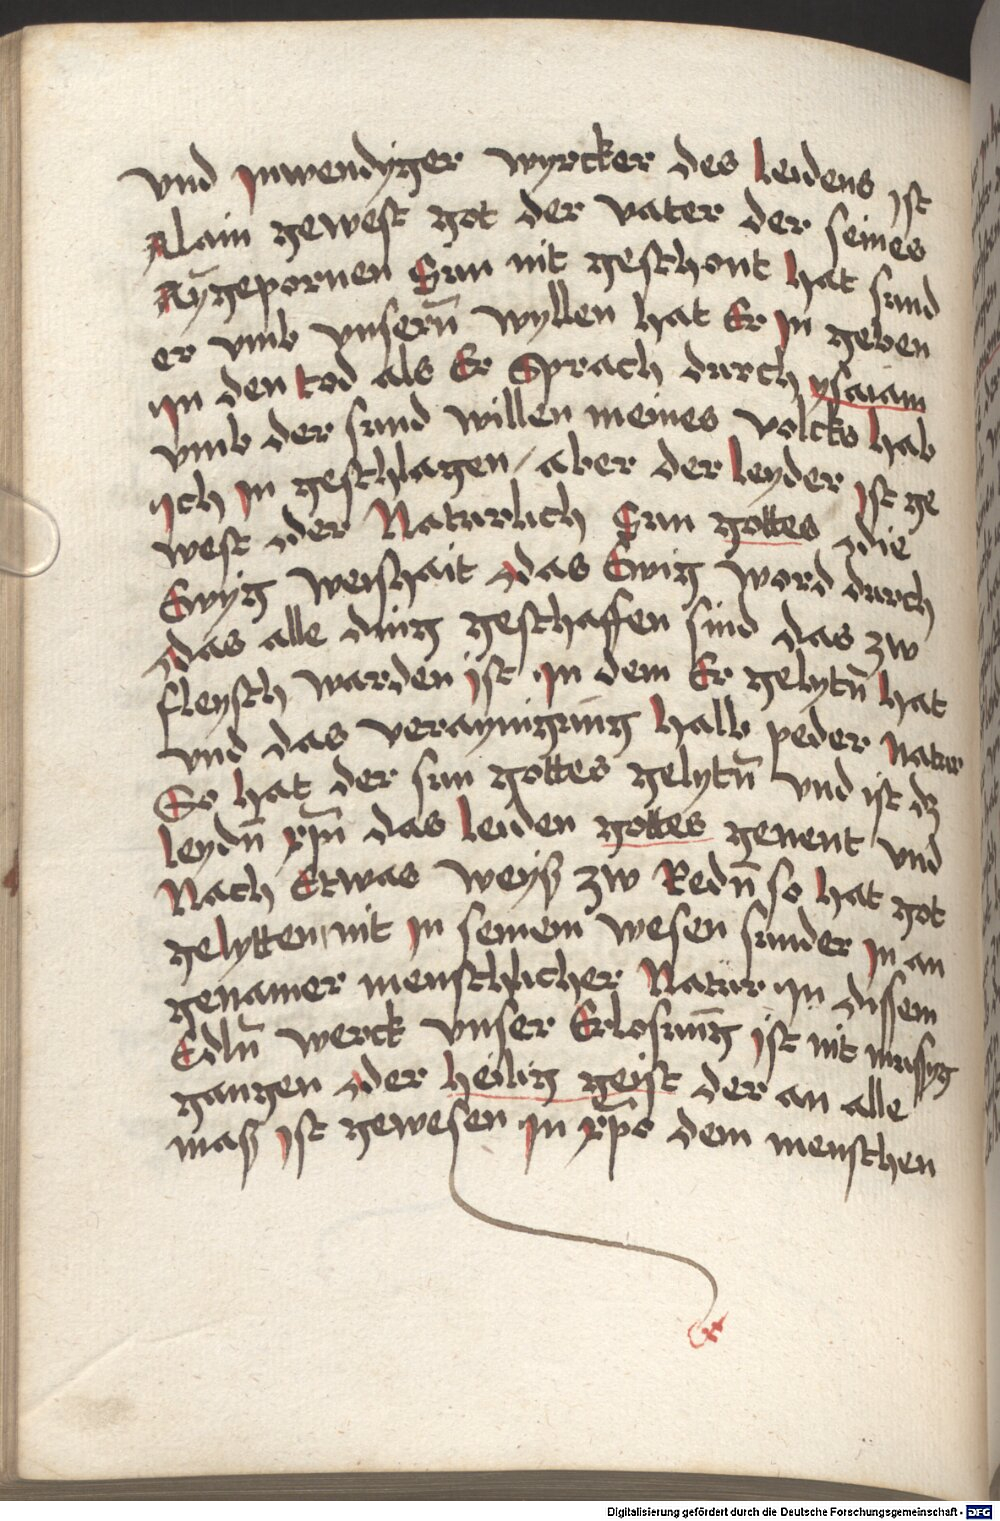 vnd Inwendyger wyrcker des leidens ist
Alain gewest got der vater der seines
Aỹgepornen Sun nit geschont hat sund
er vmb vnsern̄ wyllen hat Er In geben
In den tod als Er Sprach durch ysaiam
vmb der sund willen meines volcks hab
Ich In geschlagen / aber der leyder ist ge
west der Naturlich Sun gottes die
Ewyg weishait das Ewig word durch
das alle ding geschaffen sind das zw
fleysch warden ist In dem Er gelytn̄ hat
vnd das veraynigung halb peder Natur
So hat der sun gottes gelytn̄ vnd ist dz
leydn̄ xp̄i das leiden gottes genent vnd
Nach Etwas weyß zw Redn̄ so hat got
gelytten nit In seinem wesen sunder In an
genamer menschlicher Natur In dissem
Edln̄ werck vnser Erlosung ist nit mussyg
gangen der heilig geist der an alle
maß ist gewesen In xp̄o dem menschen
Digitalisierung gefördert durch die Deutsche Forschungsgemeinschaft - DFG